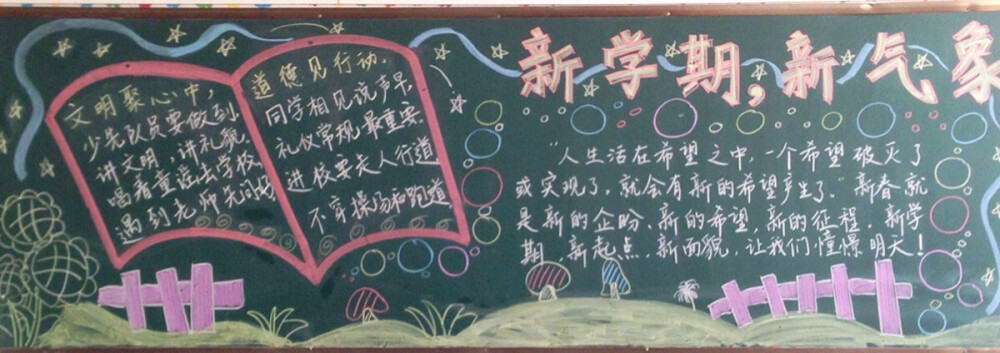 文明聚心中,
少先队员要做到
讲文明,讲礼貌
唱着童谣去学校
遇到老师先问好
道德见行动.
同学相见说声早
礼仪常规最重要
进校要走人行道
不穿操场和跑道
新学期,新气象
“人生活在希望之中,一个希望破灭了
或实现了,就会有新的希望产生了.”新春就
是新的企盼、新的希望,新的征程,新学
期,新起点,新面貌,让我们憧憬明天!